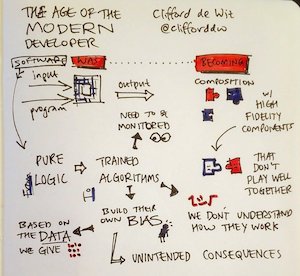 THE AGE OF THE
MODERN
DEVELOPER
Clifford de Wit
@clifforddw
SOFTWARE WAS
BECOMING
input
program
output
COMPOSITION
W/ HIGH
FIDELITY
COMPONENTS
NEED TO
BE
MONITORED
THAT
DON'T
PLAY WELL
TOGETHER
PURE
LOGIC
TRAINED
ALGORITHMS
WE DON'T UNDERSTAND
HOW THEY WORK
BUILD THEIR
OWN BIAS
BASED ON
THE DATA
WE GIVE
UNINTENDED CONSEQUENCES